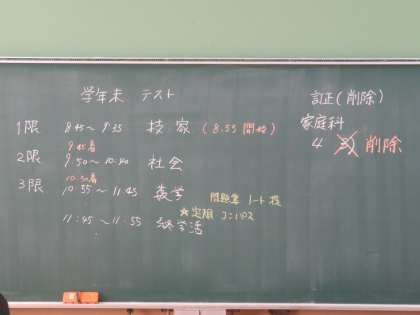 学年末 テスト
1限 8:45〜9:35 技家 (8:55 開始)
9:45着
2限 9:50〜10:40 社会
10:50着
3限 10:55〜11:45 数学
問題集 ノート 提
☆定規 コンパス
11:45〜11:55 終学活
訂正(削除)
家庭科
4 削除